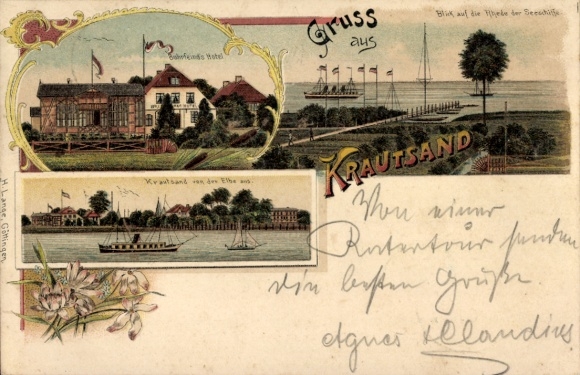 Gruss
aus
Krautsand
Blick auf die Rhede der Seeschiffe.
Hotel
Krautsand von der Elbe aus.
H. Lange, Göttingen.
Von einer
senden
die besten Grüße
Agnes & Claudius